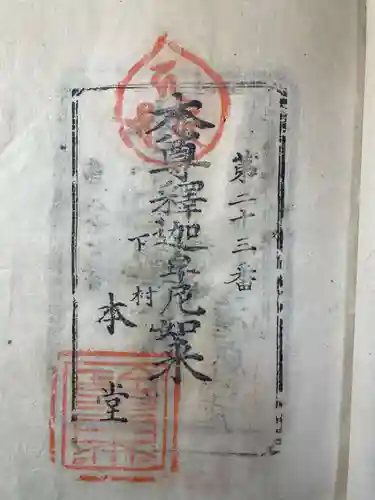 第二十三番
本尊釋迦牟尼如来
下村
本堂